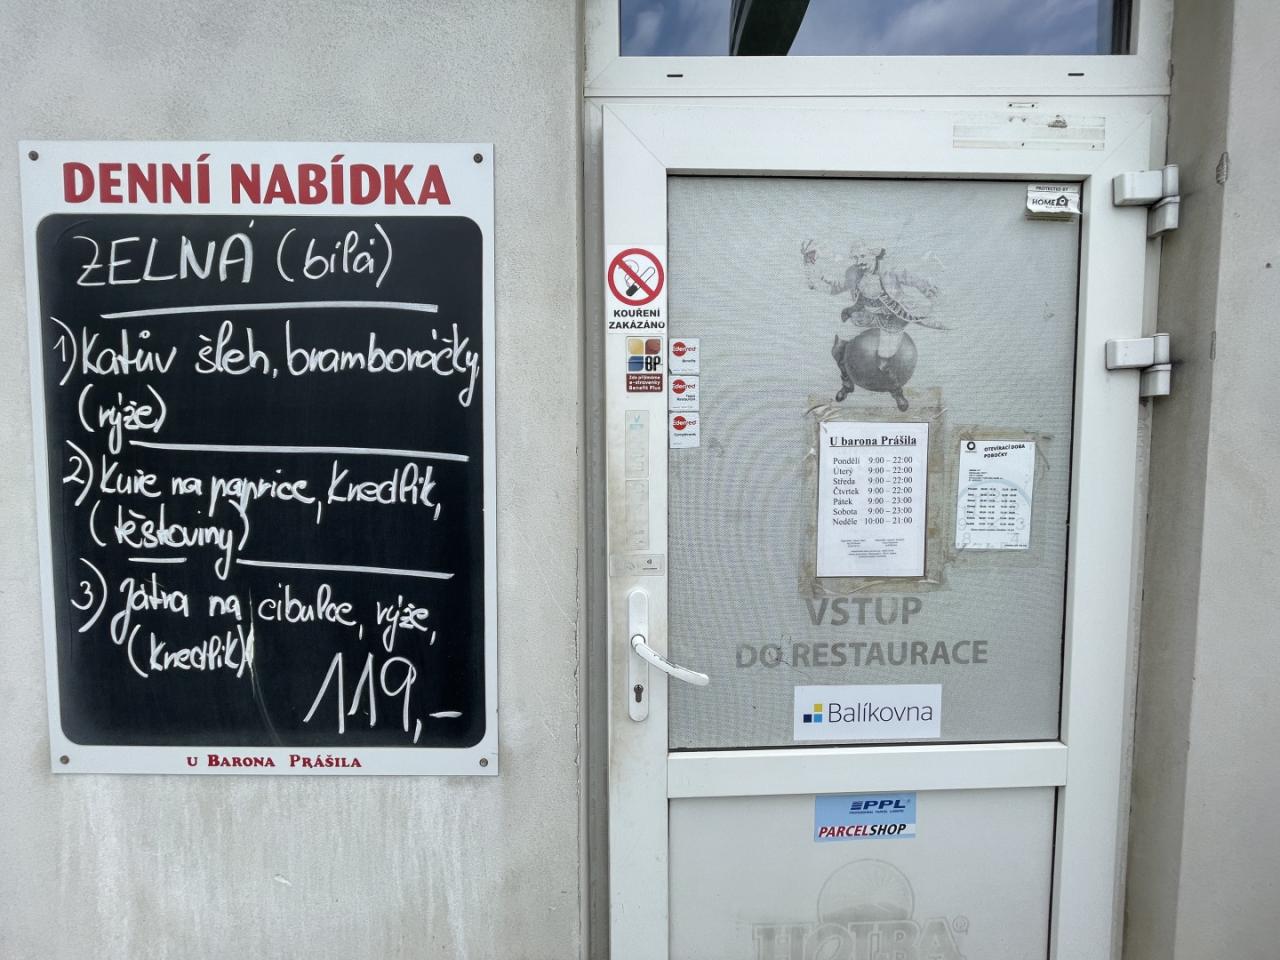 DENNÍ NABÍDKA
ZELNÁ (bílá)
1) Katův šleh, bramboráčky,
(rýže)
2) Kuře na paprice, knedlík,
(těstoviny)
3) Játra na cibulce, rýže,
(knedlík)
119,-
U BARONA PRÁŠILA
PROTECTED BY
HOME
KOUŘENÍ
ZAKÁZÁNO
BP
Zde přijímáme
e-stravenky
Benefit Plus
Edenred
Benefits
Edenred
Ticket
Restaurant
Edenred
Compliments
U barona Prášila
Pondělí 9:00 – 22:00
Úterý 9:00 – 22:00
Středa 9:00 – 22:00
Čtvrtek 9:00 – 22:00
Pátek 9:00 – 23:00
Sobota 9:00 – 23:00
Neděle 10:00 – 21:00
OTEVÍRACÍ DOBA
POBOČKY
VSTUP
DO RESTAURACE
Balíkovna
PPL
PROFESSIONAL PARCEL LOGISTIC
PARCELSHOP
HOLBA®